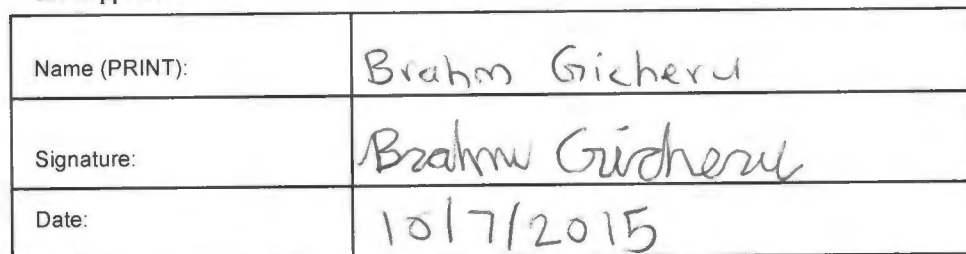 Name (PRINT): Brahm Gicheru
Signature: Brahm Gicheru
Date: 10/7/2015